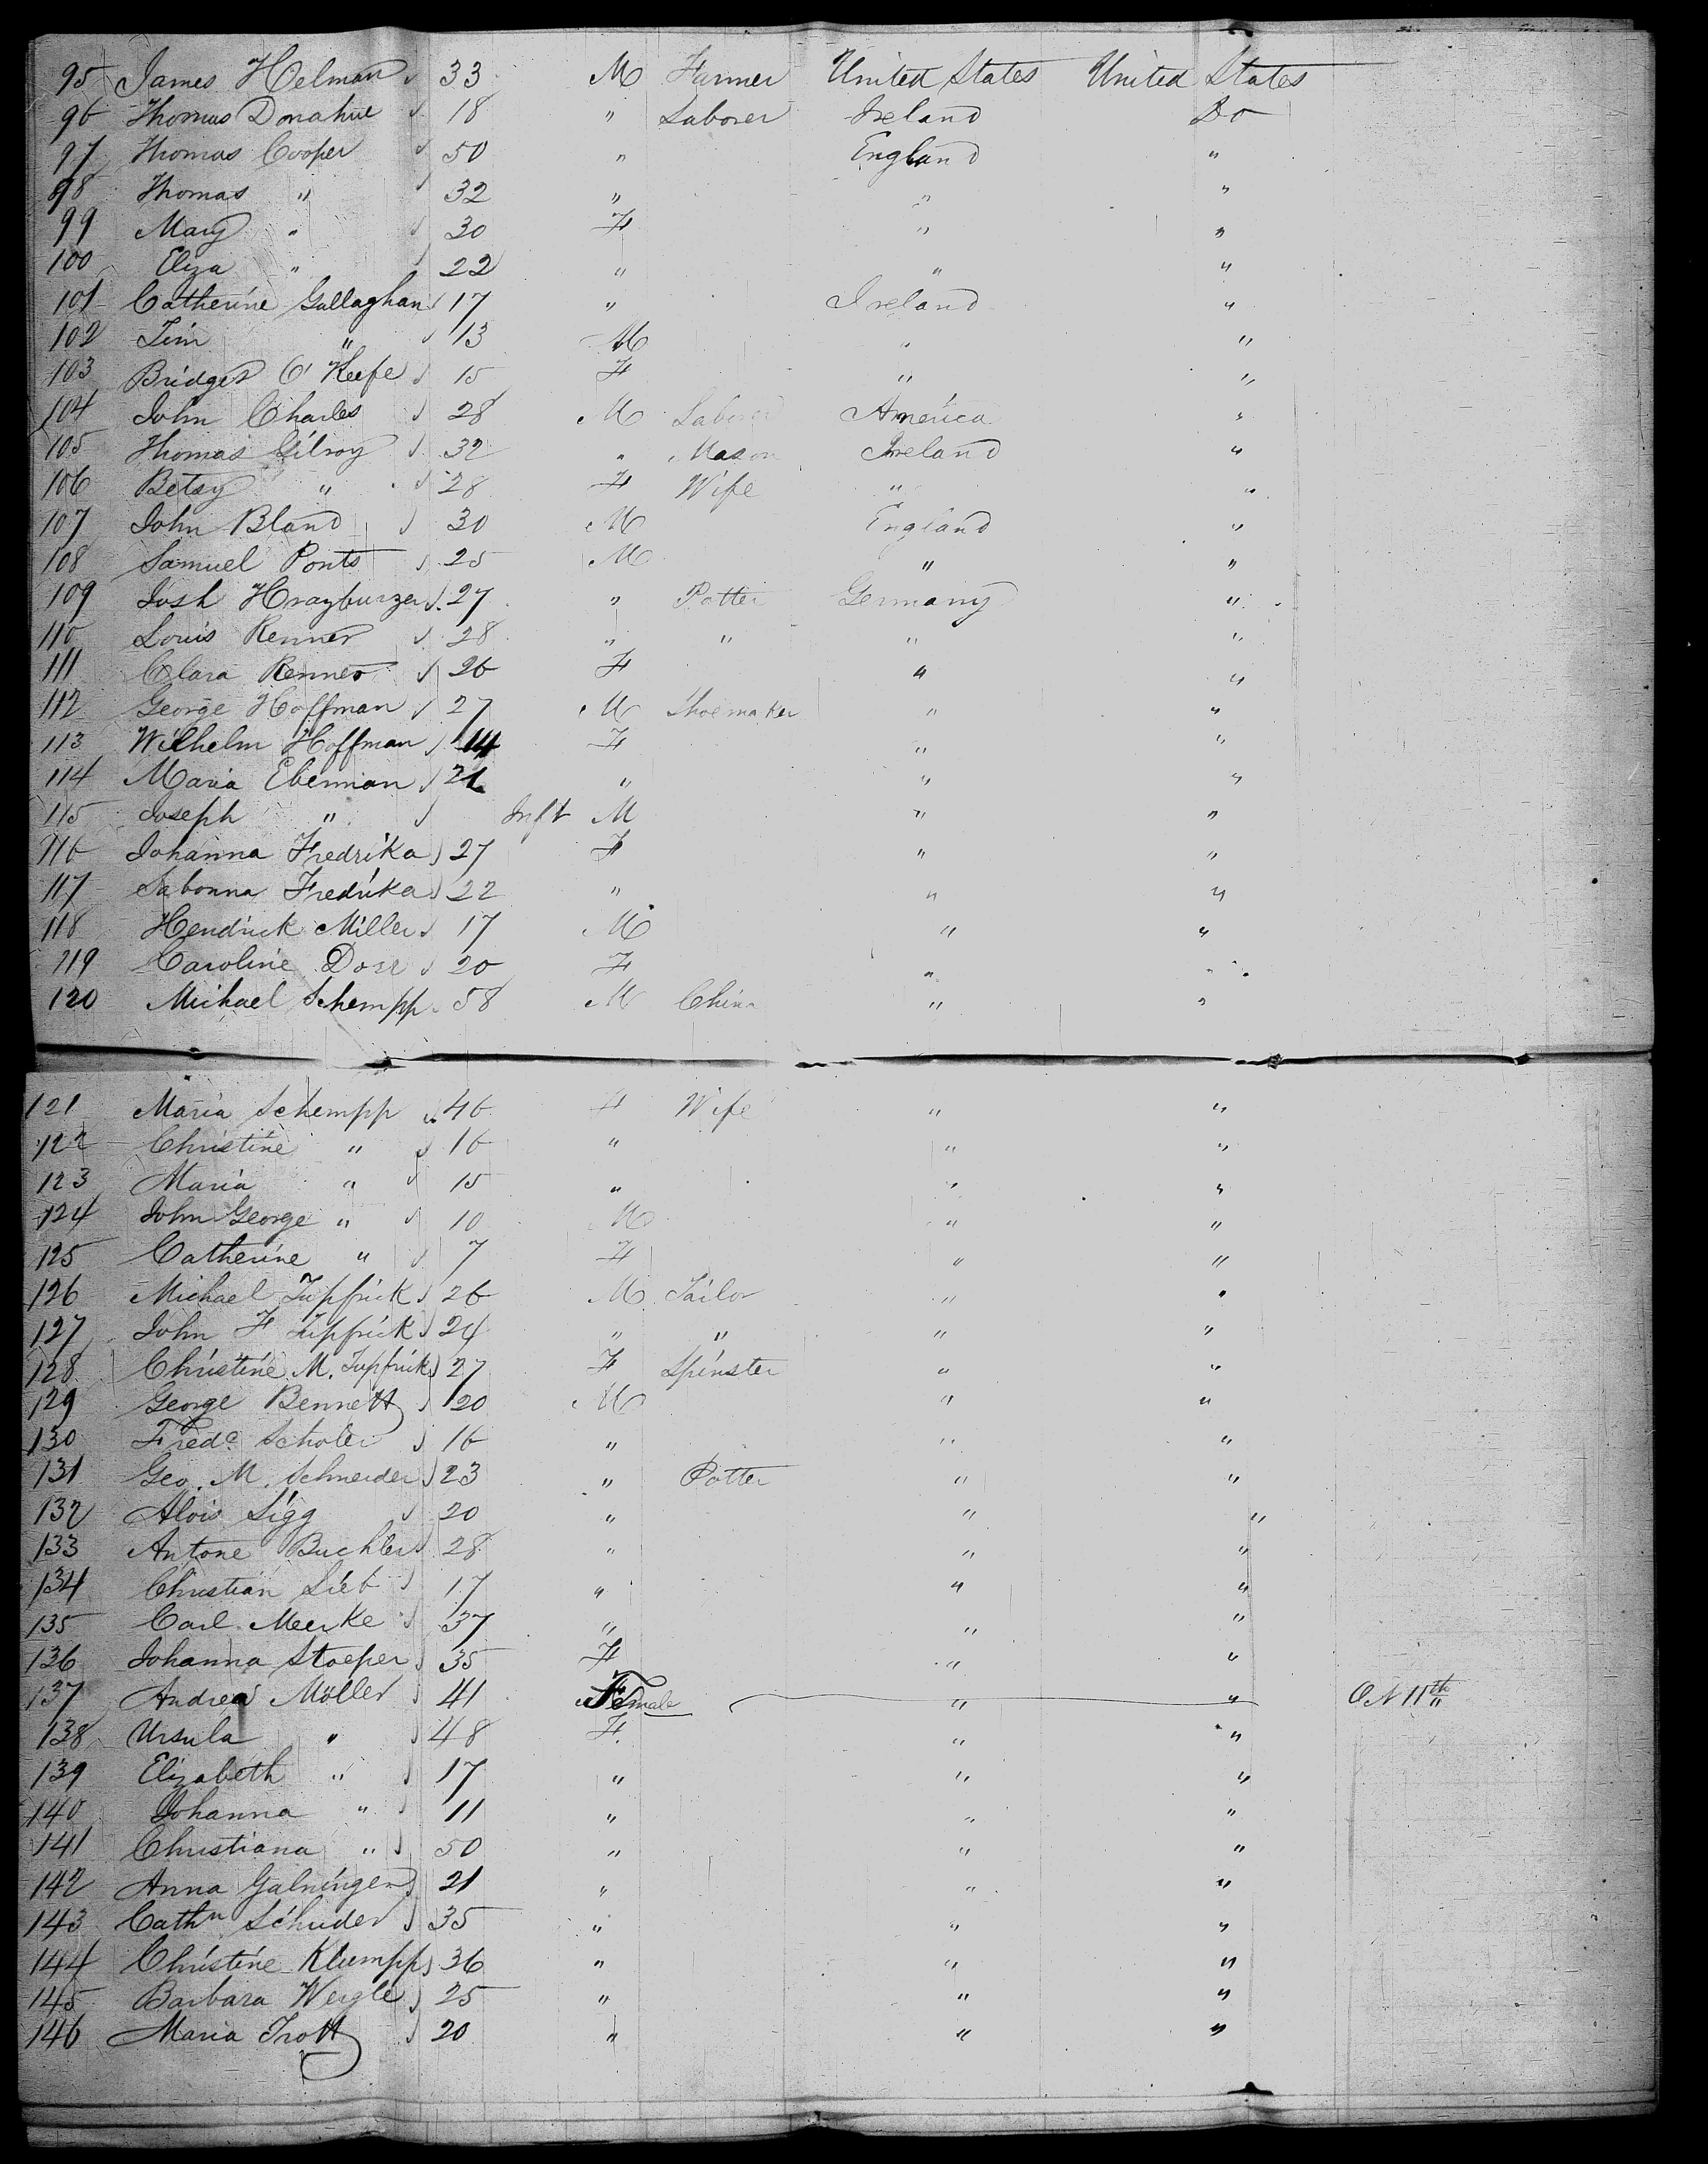 95 James Helman 33 M Farmer United States United States
96 Thomas Donahue 18 " Laborer Ireland Do
97 Thomas Cooper 50 " England "
98 Thomas " 32 " " "
99 Mary " 30 F " "
100 Eliza " 22 " " "
101 Catherine Gallaghan 17 " Ireland "
102 Tim " 13 M " "
103 Bridget O'Keefe 15 F " "
104 John Charles 28 M Laborer America "
105 Thomas Gilroy 32 " Mason Ireland "
106 Betsy " 28 F Wife " "
107 John Bland 30 M England "
108 Samuel Ponts 25 M " "
109 Josh Hrayburzer 27 " Potter Germany "
110 Louis Renner 28 " " " "
111 Clara Renner 26 F " "
112 George Hoffman 27 M Shoemaker " "
113 Wilhelm Hoffman 14 F " "
114 Maria Eberman 21 " " "
115 Joseph " Inft M " "
116 Johanna Fredrika 27 F " "
117 Sabonna Fredrika 22 " " "
118 Hendrick Miller 17 M " "
119 Caroline 20 F " "
120 Michael Schempp 58 M China " "
121 Maria Schempp 46 F Wife " "
122 Christine " 16 " " "
123 Maria " 15 " " "
124 John George " 10 M " "
125 Catherine " 7 F " "
126 Michael Tupfrick 26 M Tailor " "
127 John F Tupfrick 24 " " " "
128 Christine M. Tupfrick 27 F Spinster " "
129 George Bennett 20 M " "
130 Fredc Scholer 16 " " "
131 Geo. M. Schneider 23 " Potter " "
132 Alois Sigg 20 " " "
133 Antone Buchler 28 " " "
134 Christian Sieb 17 " " "
135 Carl Meerke 37 " " "
136 Johanna Stoeper 35 F " "
137 Andrea Möller 41 Female " " ON 11th
138 Ursula " 48 F. " "
139 Elizabeth " 17 " " "
140 Johanna " 11 " " "
141 Christiana " 50 " " "
142 Anna Galningen 21 " " "
143 Cathn Schuder 35 " " "
144 Christine Klumpp 36 " " "
145 Barbara Weigle 25 " " "
146 Maria Trott 20 " " "